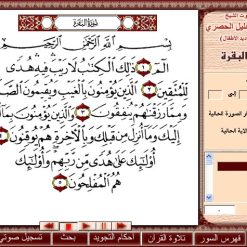 سورة البقرة
بسم الله الرحمن الرحيم
الم ١ ذلك الكتب لا ريب فيه هدى
للمتقين ٢ الذين يؤمنون بالغيب ويقيمون الصلوة
ومما رزقنهم ينفقون ٣ والذين يؤمنون بما أنزل
إليك وما أنزل من قبلك وبالآخرة هم يوقنون ٤
أولئك على هدى من ربهم وأولئك
هم المفلحون ٥
صوت الشيخ
خليل الحصري
البقرة
إلى
فهرس السور
تلاوة القرآن
أحكام التجويد
بحث
تسجيل صوتي